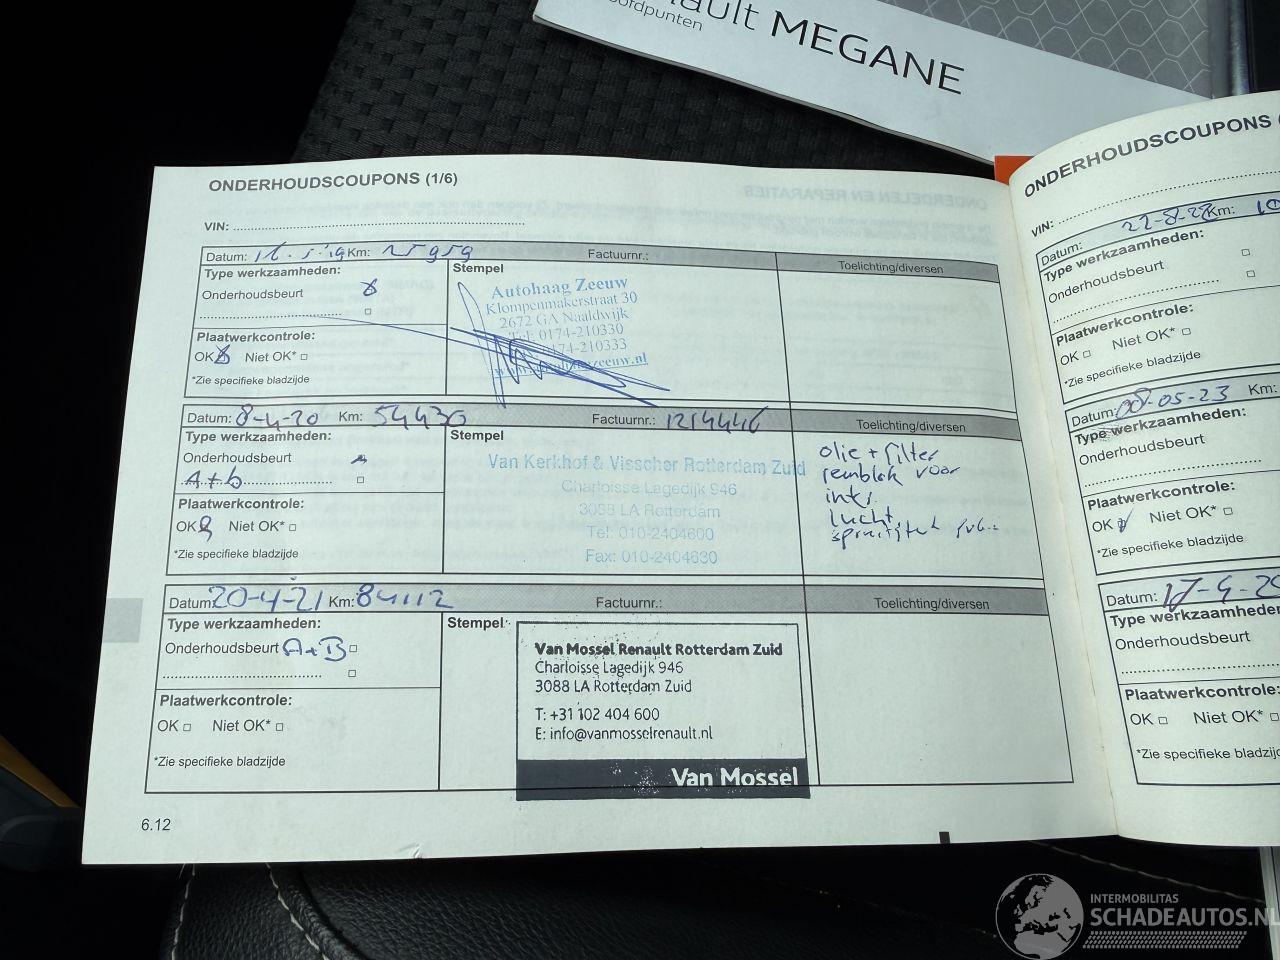 MEGANE
ONDERHOUDSCOUPONS (1/6)
VIN:
Datum: Km: Factuurnr.: Toelichting/diversen
Type werkzaamheden:
Stempel
Onderhoudsbeurt
Autohaag Zeeuw
Klompenmakerstraat 30
2672 GA Naaldwijk
Tel: 0174-210330
0174-210333
Plaatwerkcontrole:
OK Niet OK*
*Zie specifieke bladzijde
Datum: 8-4-20 Km: 54430 Factuurnr.: 1214446 Toelichting/diversen
Type werkzaamheden:
Stempel
Onderhoudsbeurt
A+b
Van Kerkhof & Visscher Rotterdam Zuid
Charloisse Lagedijk 946
3088 LA Rotterdam
Tel: 010-2404600
Fax: 010-2404630
olie + filter
remblok voor
lucht
Plaatwerkcontrole:
OK Niet OK*
*Zie specifieke bladzijde
Datum: 20-4-21 Km: 84112 Factuurnr.: Toelichting/diversen
Type werkzaamheden:
Stempel
Onderhoudsbeurt A+B
Van Mossel Renault Rotterdam Zuid
Charloisse Lagedijk 946
3088 LA Rotterdam Zuid
T: +31 102 404 600
E: info@vanmosselrenault.nl
Van Mossel
Plaatwerkcontrole:
OK Niet OK*
*Zie specifieke bladzijde
6.12
ONDERHOUDSCOUPONS
VIN:
Datum: Km:
Type werkzaamheden:
Onderhoudsbeurt
Plaatwerkcontrole:
OK Niet OK*
*Zie specifieke bladzijde
Datum: 08-05-23 Km:
Type werkzaamheden:
Onderhoudsbeurt
Plaatwerkcontrole:
OK Niet OK*
*Zie specifieke bladzijde
Datum:
Type werkzaamheden
Onderhoudsbeurt
Plaatwerkcontrole:
OK Niet OK*
*Zie specifieke bladzijde
INTERMOBILITAS
SCHADEAUTOS.NL